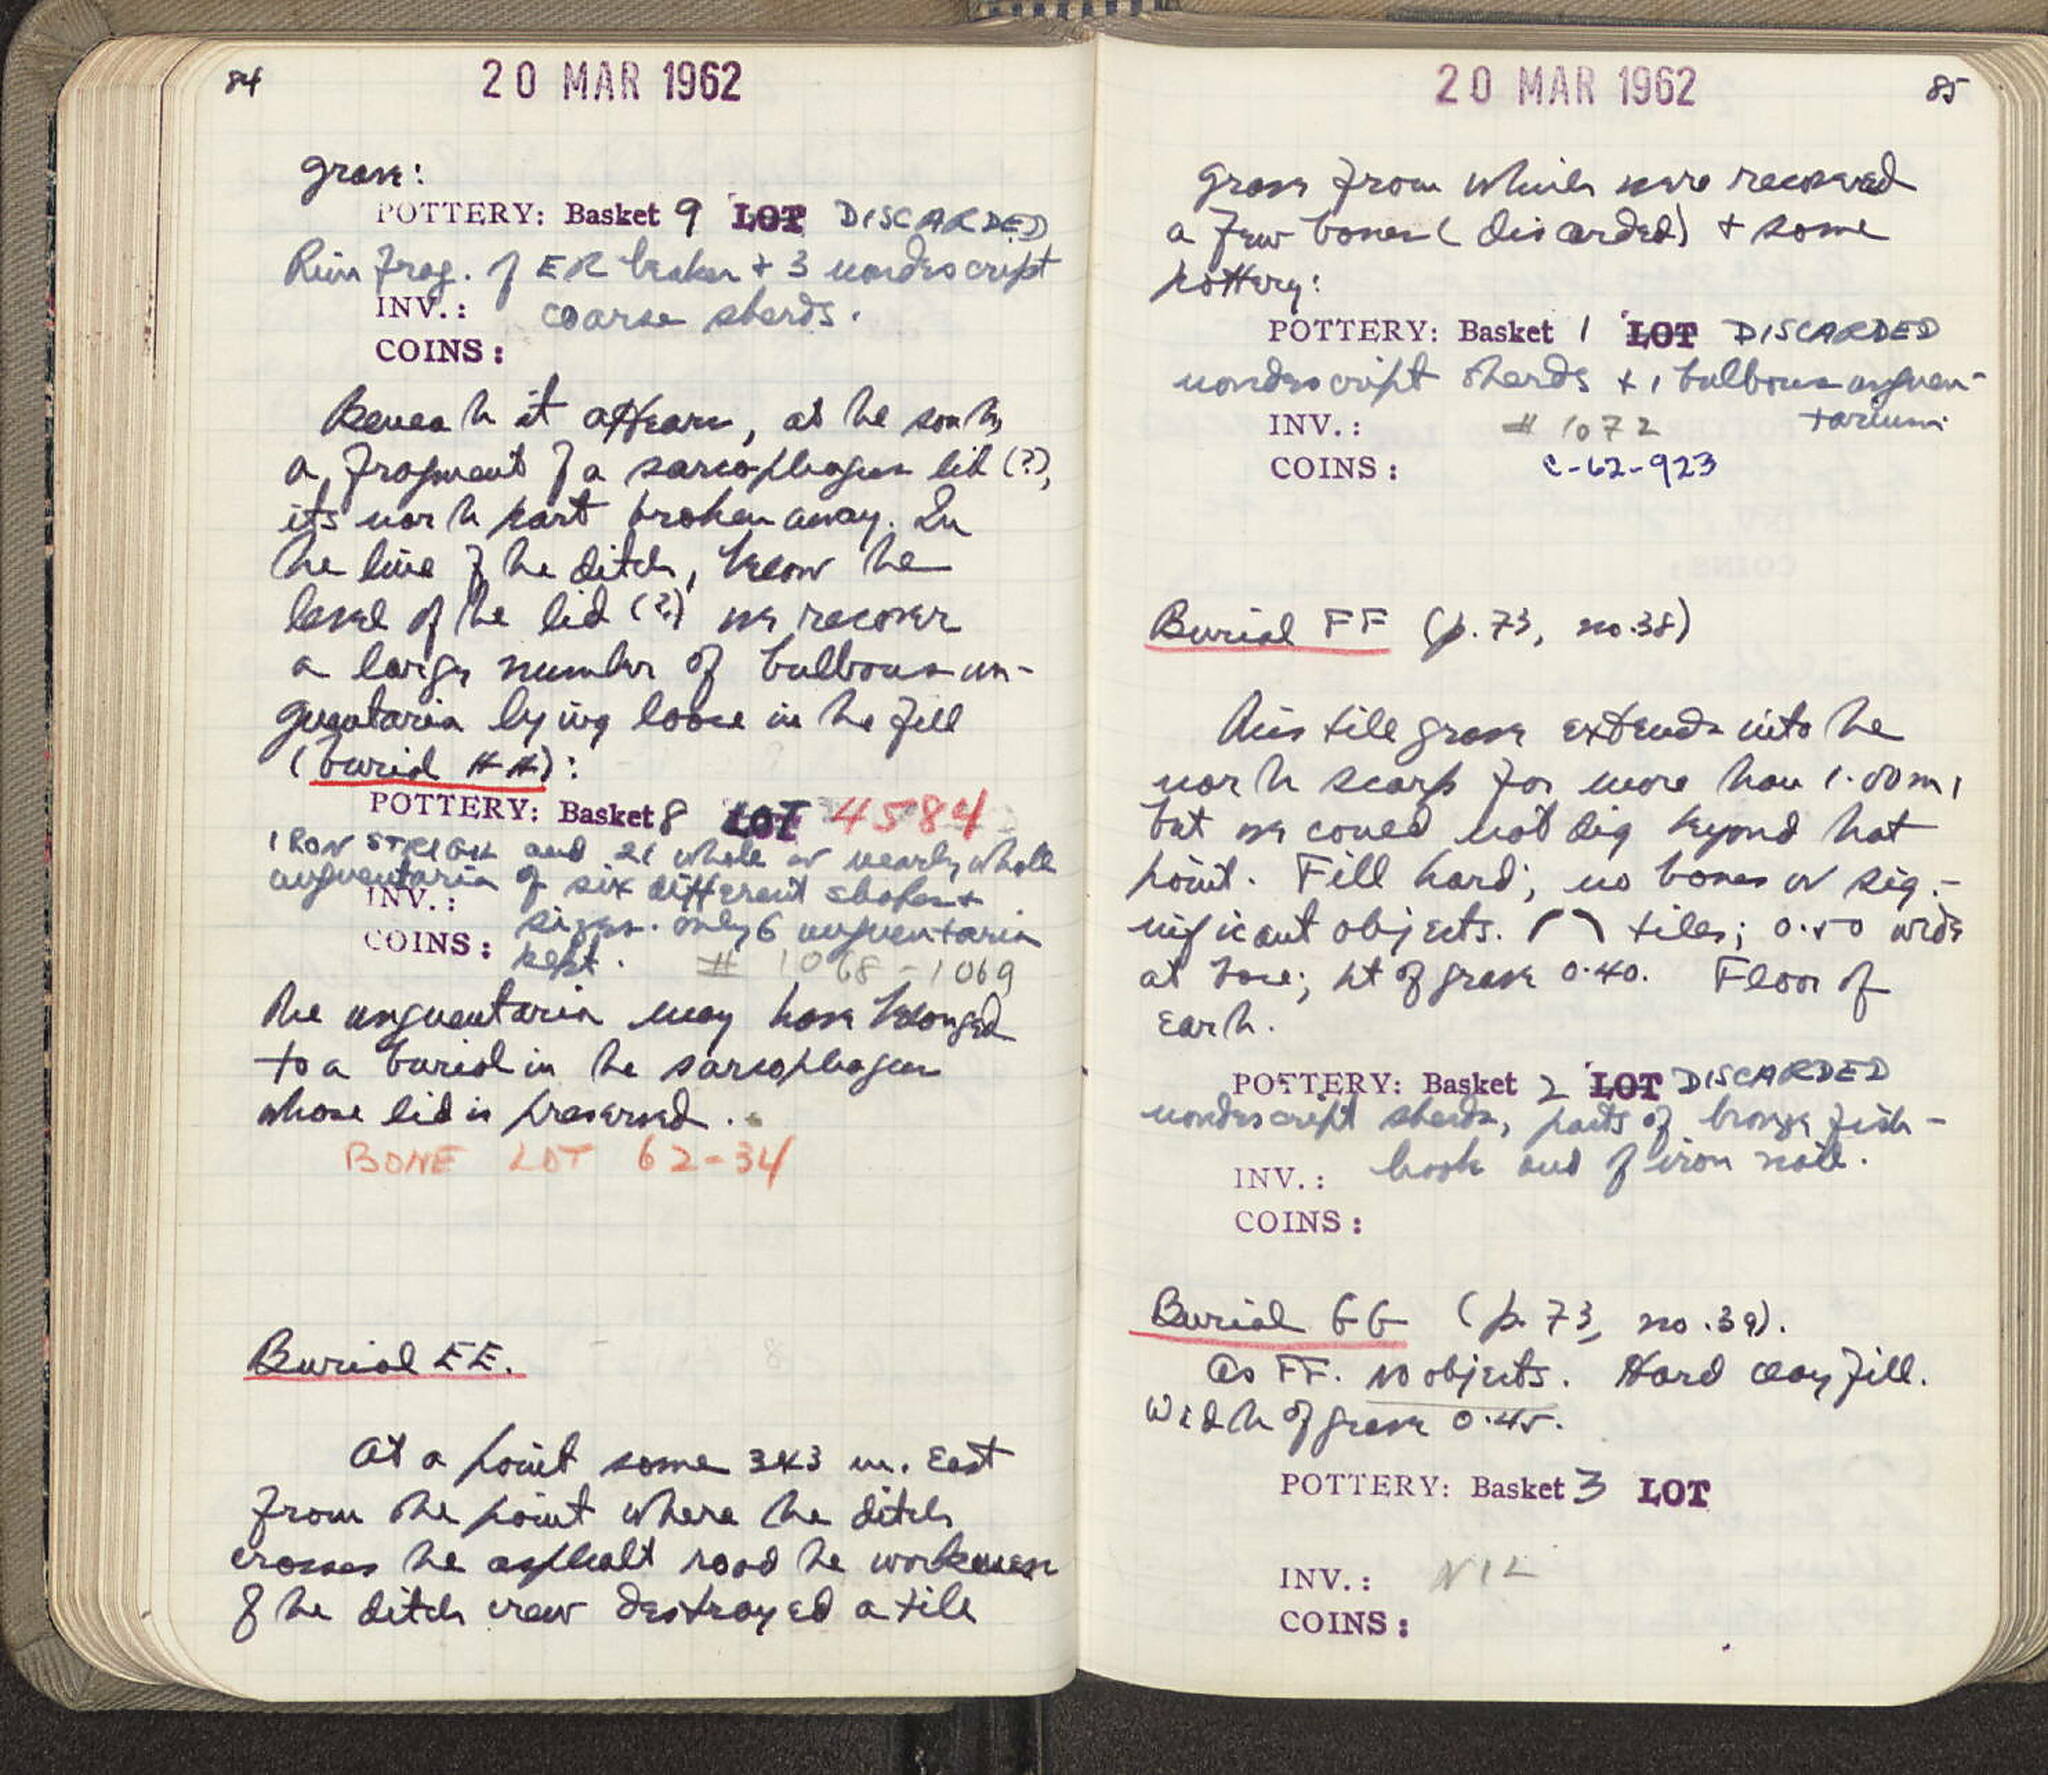 84
20 MAR 1962
grave:
POTTERY: Basket 9 LOT DISCARDED
Rim frag. of ER beaker + 3 nondescript
INV.: coarse sherds.
COINS:
Beneath it appears, at the south,
a fragment of a sarcophagus lid (?),
its north part broken away. In
the line of the ditch, below the
level of the lid (?) we recover
a large number of bulbous un-
guentaria lying loose in the fill
(burial HH):
POTTERY: Basket 8 LOT 4584
IRON STRIGIL and 21 whole or nearly whole
unguentaria of six different shapes +
INV.: sizes. only 6 unguentaria
COINS: kept. # 1068-1069
The unguentaria may have belonged
to a burial in the sarcophagus
whose lid is preserved.
BONE LOT 62-34
Burial EE.
At a point some 343 m. East
from the point where the ditch
crosses the asphalt road the workmen
of the ditch crew destroyed a tile
20 MAR 1962
85
grave from which were recovered
a few bones (discarded) + some
pottery:
POTTERY: Basket 1 LOT DISCARDED
nondescript sherds + 1 bulbous unguen-
tarium
INV.: # 1072
COINS: C-62-923
Burial FF (p. 73, no. 38)
This tile grave extends into the
north scarp for more than 1.00 m,
but we could not dig beyond that
point. Fill hard; no bones or sig-
nificant objects. tiles; 0.50 wide
at base; ht of grave 0.40. Floor of
earth.
POTTERY: Basket 2 LOT DISCARDED
nondescript sherds, parts of bronze fish-
INV.: hook and of iron nail.
COINS:
Burial GG (p. 73, no. 39).
As FF. No objects. Hard clay fill.
Width of grave 0.45.
POTTERY: Basket 3 LOT
INV.: NIL
COINS: